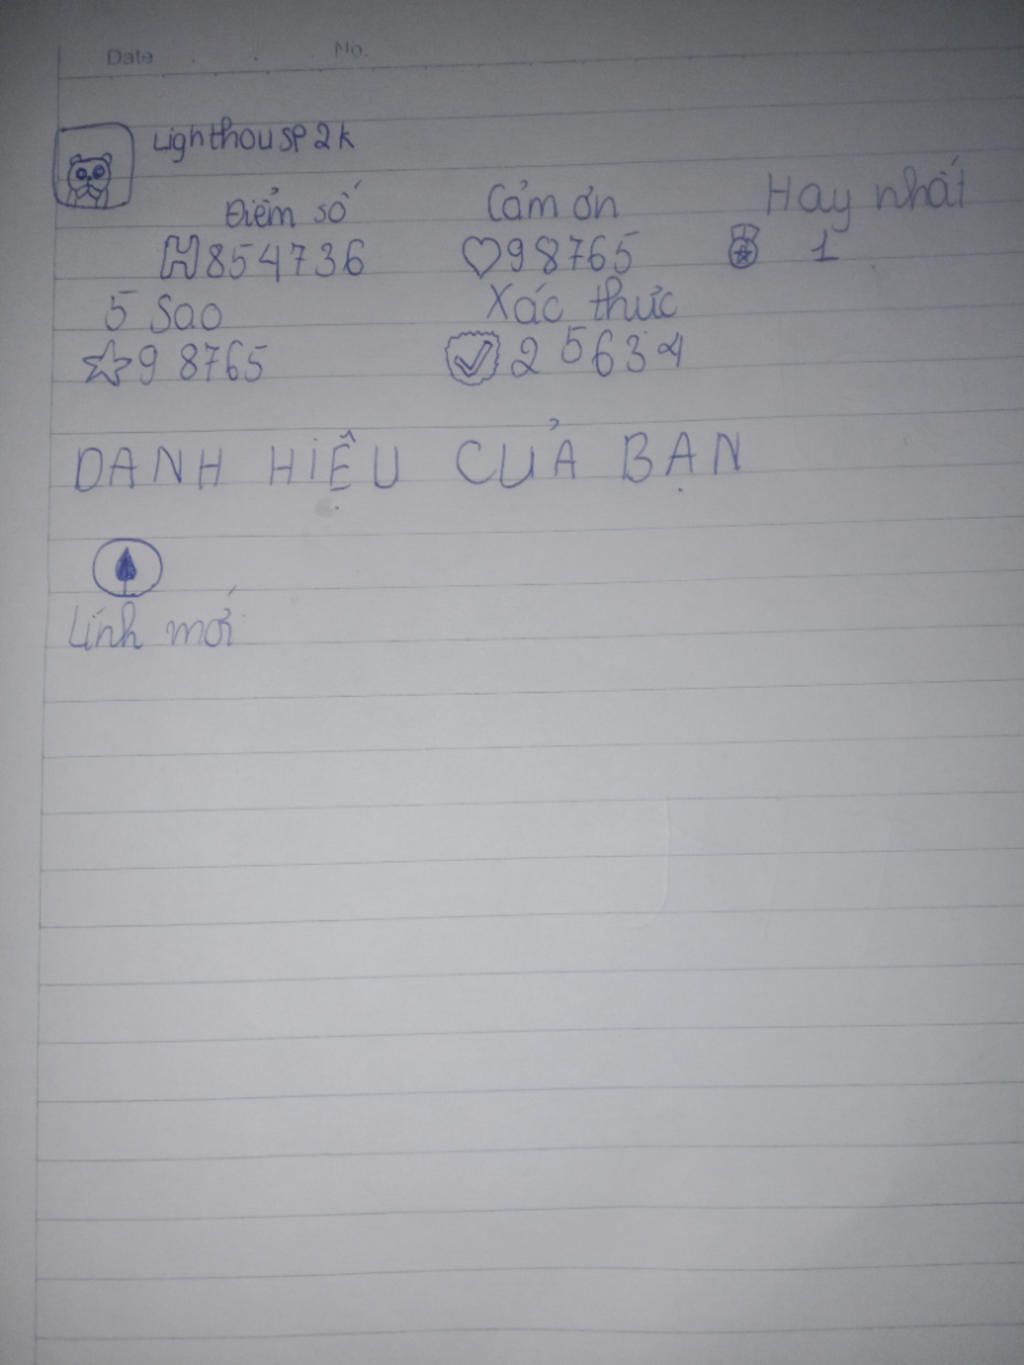 Date No.
Lighthousp2k
Điểm số Cảm ơn Hay nhất
854736 98765 1
5 Sao Xác thực
98765 25634
DANH HIỆU CỦA BẠN
Lính mới